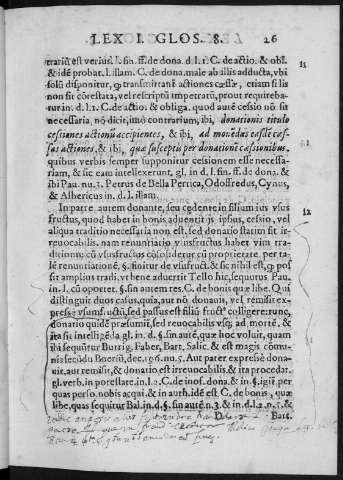 LEX I. GLOS. 8. 26
traxit est verius. l. fin. ff. de dona. d. l. 1. C. de actio. & obl.
& idē probat. l. illam. C. de dona. male ab illis adducta, vbi
solū disponitur, q; transmittant̄ actiones cessæ, etiam si lis
non sit cōtestata, vel rescriptū impetratū, prout requireba-
tur in. d. l. 1. C. de actio. & obliga. quod autē cessio nō sit
necessaria, nō dicit, imò contrarium, ibi, donationis titulo
cessiones actionū accipientes, & ibi, ad mouēdas cessæ cas-
sas actiones, & ibi, quæ susceptis per donationē cassionibus.
quibus verbis semper supponitur cessionem esse necessa-
riam, & sic eam intellexerunt, gl. in d. l. fin. ff. de dona. &
ibi Pau. nu. 3. Petrus de Bella Pertica, Odoffredus, Cynus,
& Albericus in d. l. illam.
In patre autem donante, seu cedente in filium ius vsus
fructus, quod habet in bonis aduentijs ipsius, cessio, vel
aliqua traditio necessaria non est, sed donatio statim fit ir-
reuocabilis. nam renuntiatio vlusfructus habet vim tra-
ditionis: cū vsusfructus cōsolidetur cū proprietate. per ta-
lē renuntiationē, §. finitur de vsufruct. & sic nihil est, q; pos
sit amplius tradi. vt bene aduertit Tello hic, sequitur Pau.
in. l. cū oportet. §. sin autem res. C. de bonis quæ libe. Qui
distinguit duos casus, quia, aut nō. donauit, vel remisit ex-
presse vsumfructū, sed passus est filiū fruct° colligere: tunc,
donatio quidē præsumit̄, sed reuocabilis vsq; ad mortē, &
ita fit intelligēda gl. in d. §. sin autē. quæ hoc voluit, quam
ibi sequūtur Butrig. Faber, Bart. Salic. & est magis cōmu-
nis secūdū Boeriū, dec. 196. nu. 5. Aut pater expresse dona-
uit, aut remisit, & donatio est irreuocabilis, & ita procedat.
gl. verb. in potestate. in. l. 2. C. de inof. dona. & in §. igit̄. per
quas perso. nobis acqui. & in auth. idē est C. de bonis, quæ
libe. quas sequitur Bal. in d. §. sin autē n. 3. & in d. l. 2. n. 5. &
Bart.
11
12